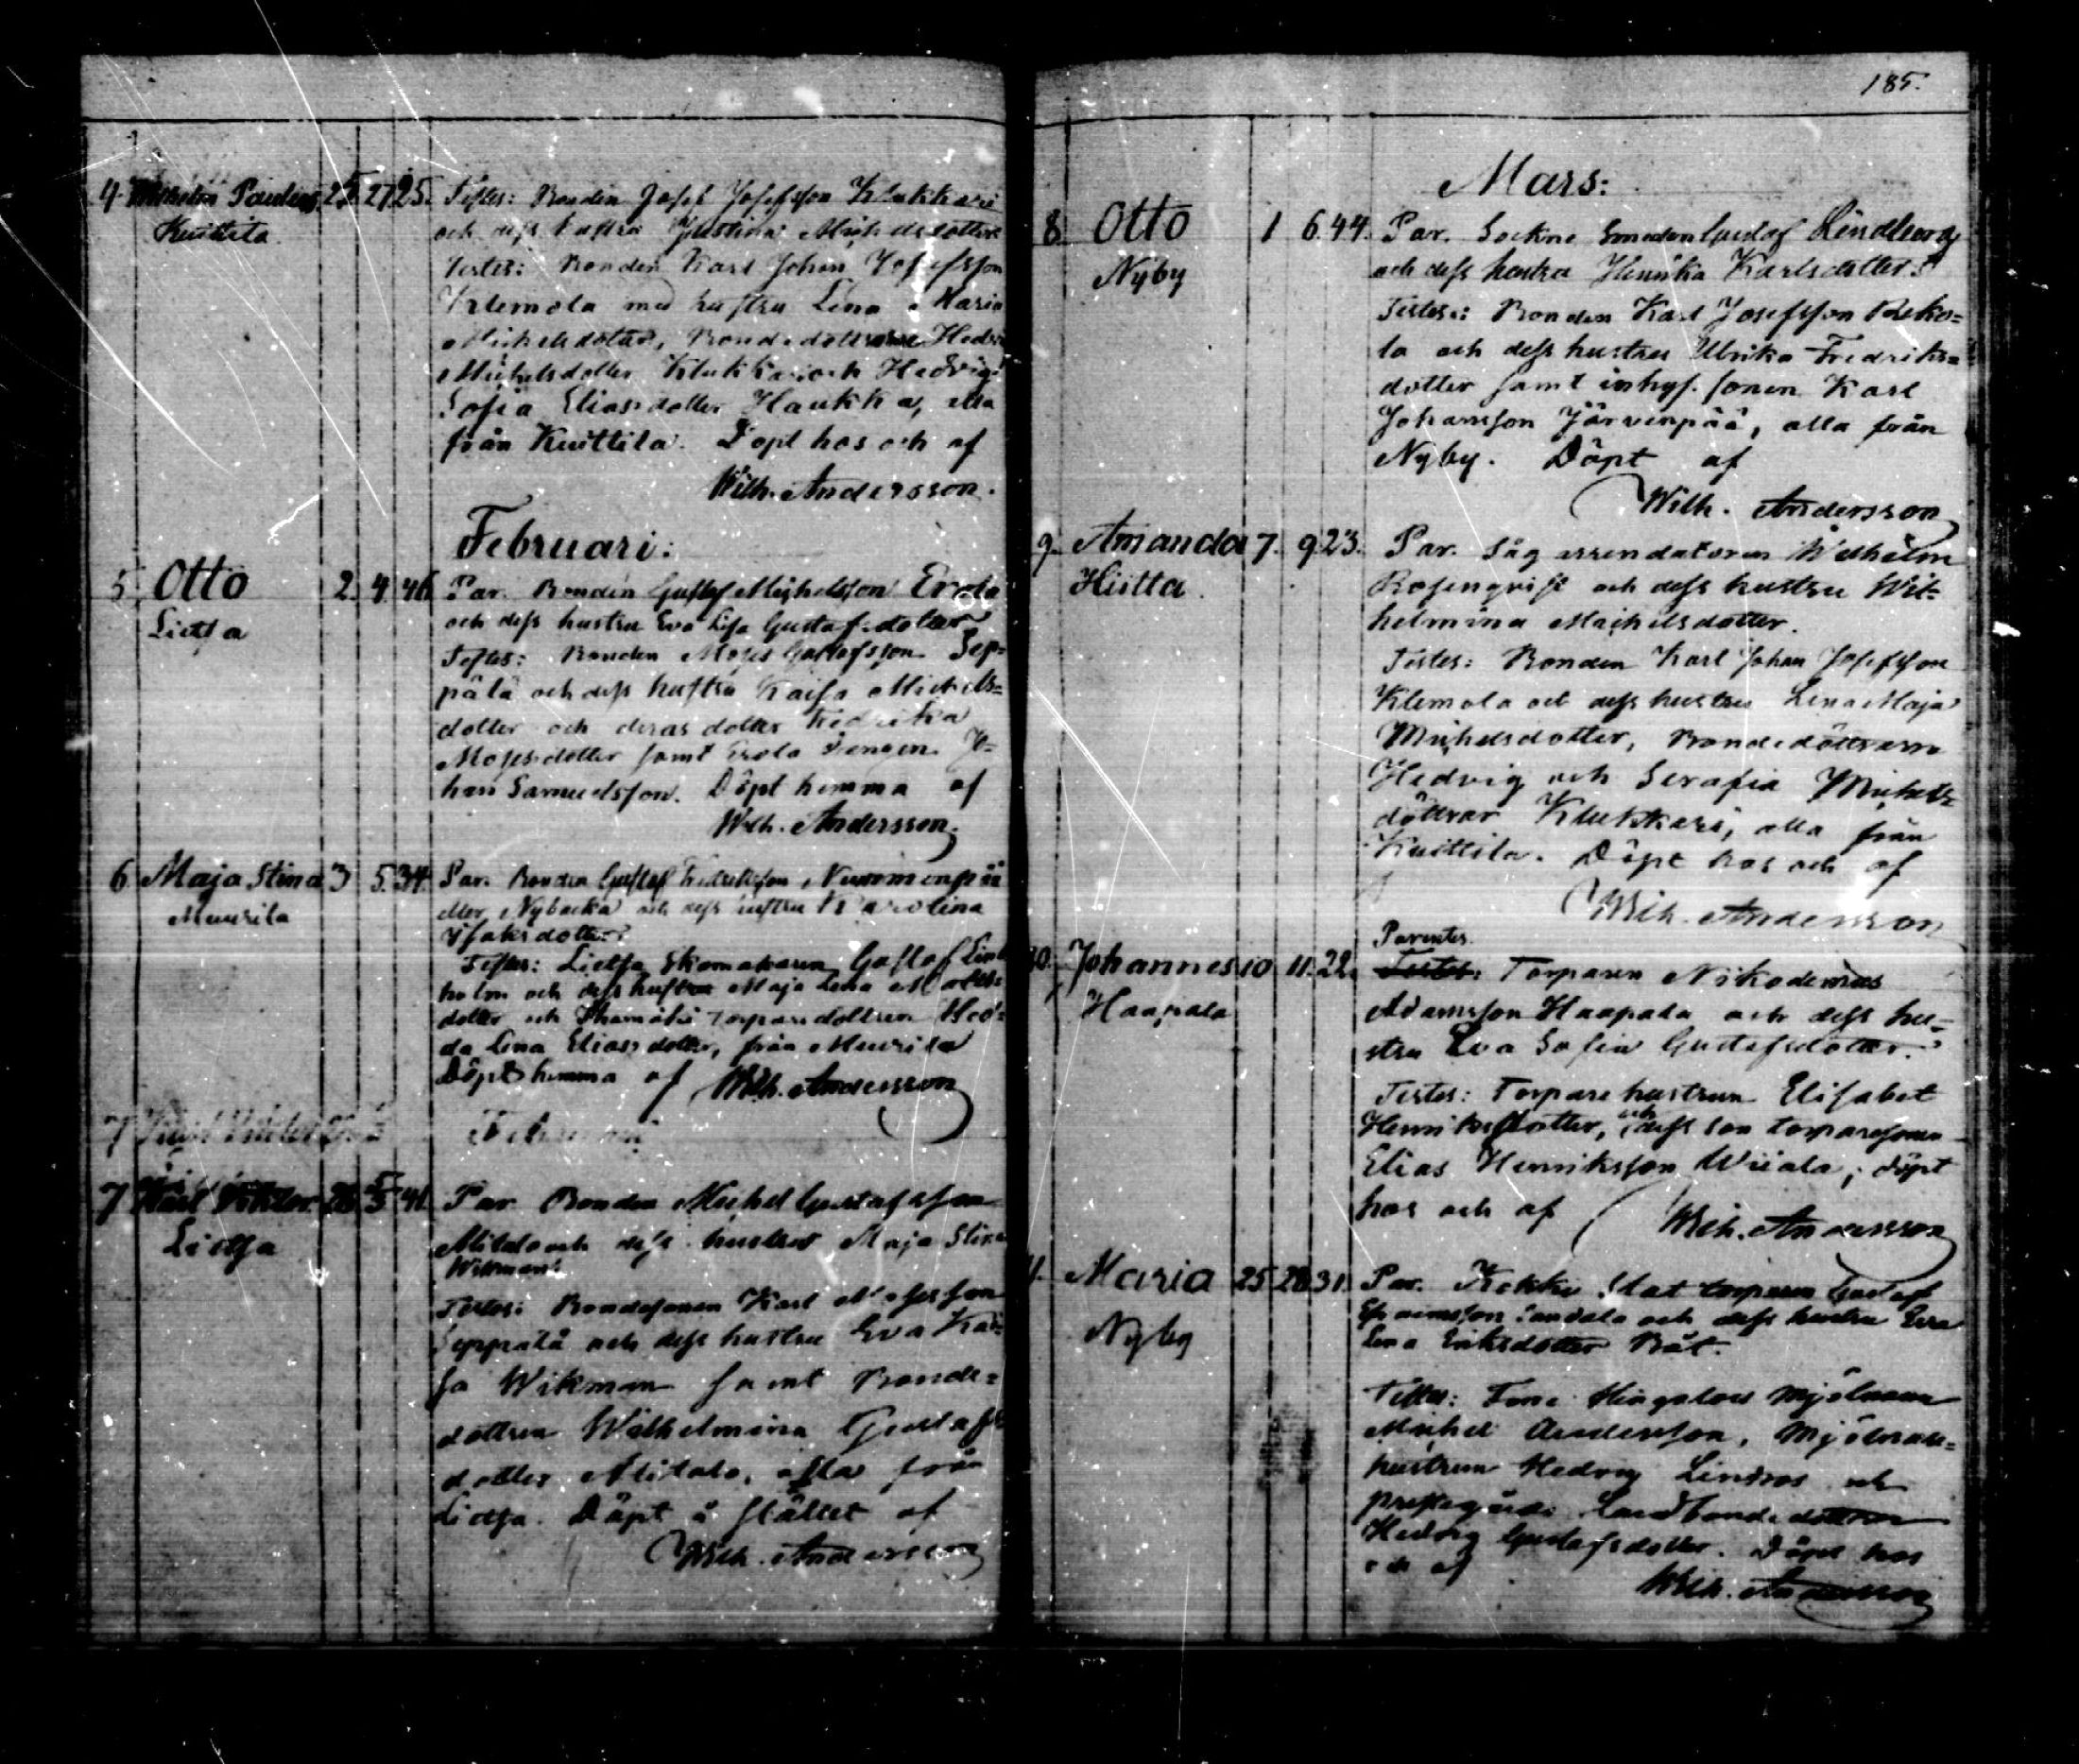 4. Wilhelm Paulin 25. 27. 25. Testes: Bonden Josef Josefsson Klukkari
Kuittila och dess hustru Justina Michelsdotter
Testes: Bonden Karl Johan Josefsson
Klemola med hustru Lena Maria
Michelsdotter, Bondedöttrarne
Michelsdotter Klukkari och Hedvig
Sofia Eliasdotter Haukka, alla
från Kuittila. Döpt hos och af
Wilh. Andersson.
Februari:
5. Otto 2. 4. 46. Par. Bonden Gustaf Michelsson Erola
Lietsa och dess hustru Eva Lisa Gustafsdotter
Testes: Bonden Moses Gustafsson Sep=
pälä och dess hustru Kaisa Michels=
dotter och deras dotter Fredrika
Mosesdotter samt Erola drengen Jo=
han Samuelsson. Döpt hemma af
Wilh. Andersson.
6 Maja Stina 3 5. 34. Par. Bonden Gustaf Fredriksson Nummenpää
Muurila eller Nybacka och dess hustru Karolina
Isaksdotter
Testes: Lietsa Skomakaren Gustaf Lind
holm och dess hustru Maja Lena Matts=
dotter och torparedottren Hed=
da Lena Eliasdotter, från Muurila
Döpt hemma af Wilh. Andersson
7 Februari
7 Karl Viktor 28. 5 41. Par. Bonden Michel Gustafsson
Lietsa Alitalo och dess hustru Maja Stina
Wikman.
Testes: Bondesonen Karl Mosesson
Seppälä och dess hustru Eva Kai=
sa Wikman samt Bonde=
dottren Wilhelmina Gustafs
dotter Alitalo, alla från
Lietsa. Döpt å stället af
Wilh. Andersson
185.
Mars:
8. Otto 1 6. 44. Par. Sockne Smeden Gustaf Lindberg
Nyby och dess hustru Henrika Karlsdotter
Testes: Bonden Karl Josefsson Reko=
la och dess hustru Ulrika Fredriks=
dotter samt inhys. sonen Karl
Johansson Järvenpää, alla från
Nyby. Döpt af
Wilh. Andersson
9. Amanda 7. 9. 23. Par. Såg arrendatorn Wilhelm
Hiitta. Rosenqvist och dess hustru Wil=
helmina Michelsdotter.
Testes: Bonden Karl Johan Josefsson
Klemola och dess hustru Lena Maja
Michelsdotter, Bondedöttrarne
Hedvig och Serafia Michels=
döttrar Klukkari, alla från
Kuittila. Döpt hos och af
Wilh. Andersson
Parentes.
10. Johannes 10 11. 22. Testes: Torparen Nikodemus
Haapala Adamsson Haapala och dess hu=
stru Eva Sofia Gustafsdotter.
Testes: Torpare hustrun Elisabet
Henriksdotter, och dess son torparesonen
Elias Henriksson Wiiala; döpt
hos och af Wilh. Andersson
11. Maria 25 28 31. Par. Kokki Stat torparen Gustaf
Nyby Efraimsson Sandala och dess hustru Eva
Lena Eriksdotter Båt.
Testes: Mjölnaren
Michel Andersson, Mjölnare=
hustrun Hedvig Lindroos och
prestegårds landbonde dottren
Hedvig Gustafsdotter. Döpt hos
och af
Wilh. Andersson